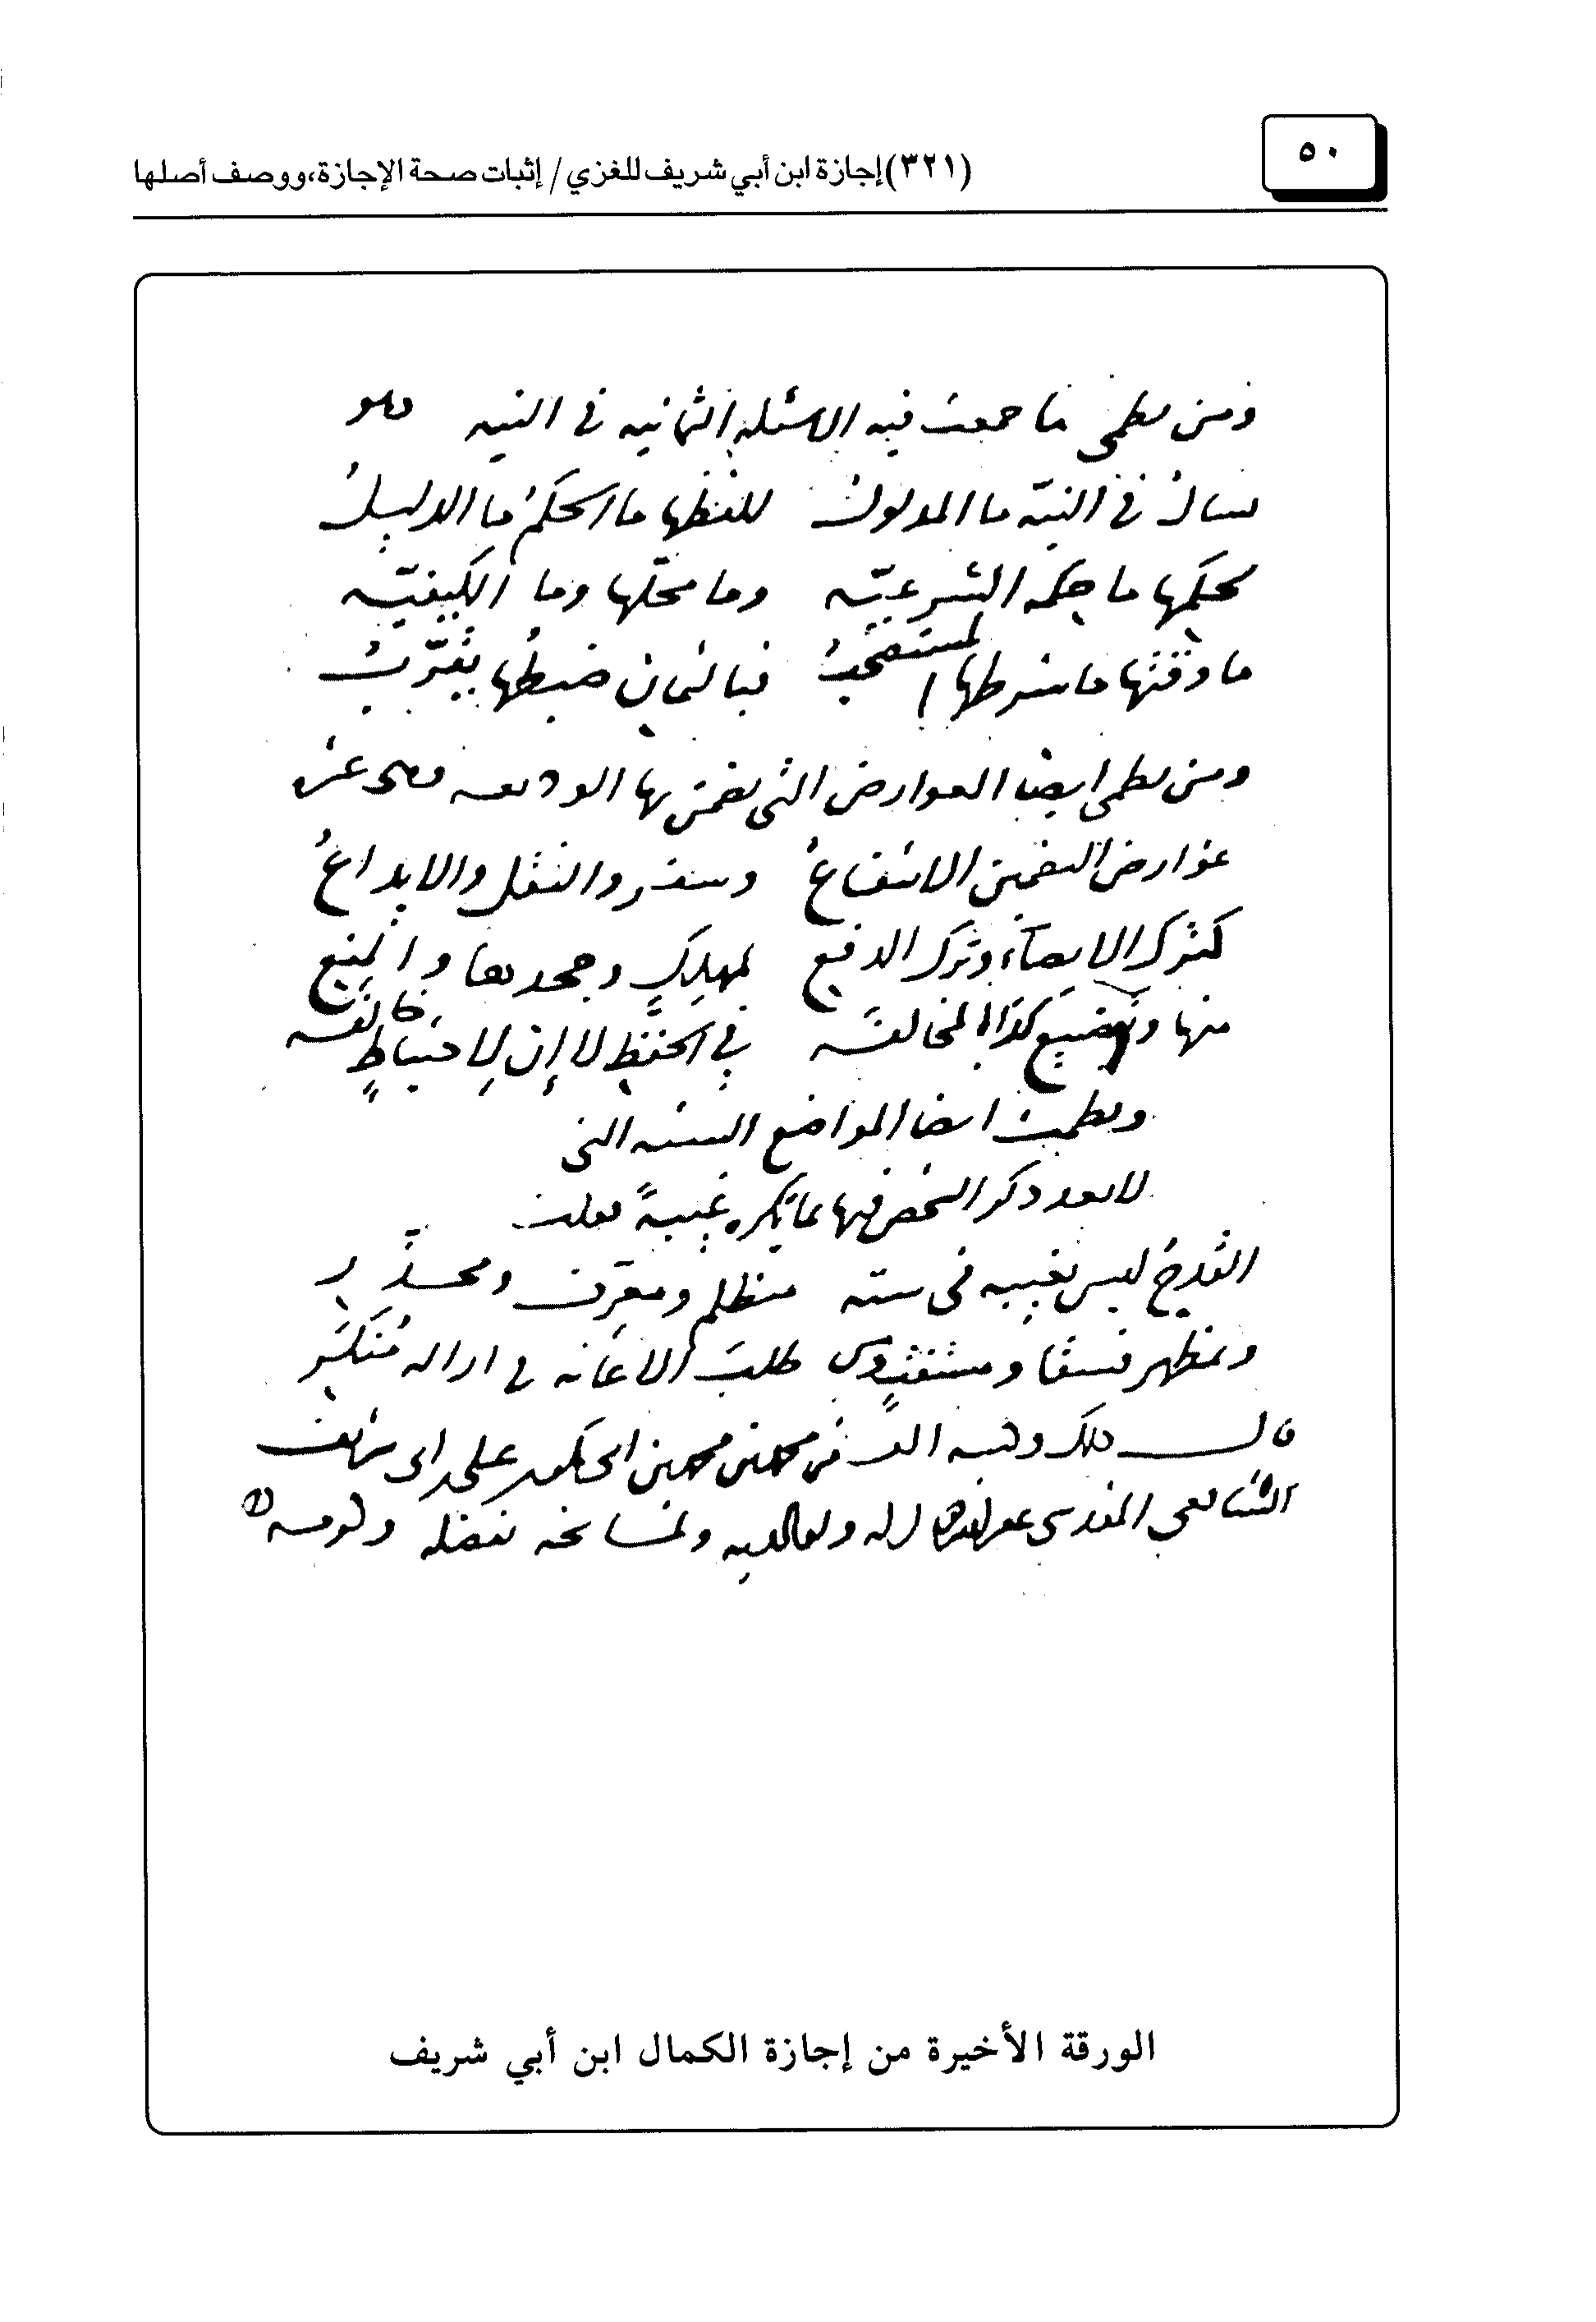 ٥٠
(٣٢١) إجازة ابن أبي شريف للغزي / إثبات صحة الإجازة، ووصف أصلها
ومن نظمي ما جمعت فيه الاسئله الثمانيه في النيه وهو
سال في النيّه ما المدلول للفظها ما الحكمُ ما الدليلُ
لحكمها ما حكمة الشرعيّه وما محلّها وما الكيفيّه
ما وقتها ما شرطها المستصحبُ فبالثمان ضبطها يقرّبُ
ومن نظمي ايضا العوارض التي تضمن بها الوديعه وهي عشره
عوارض التضمين الانتفاعُ وسفر والنقل والايداعُ
كترك الايصاء وترك الدفع لمهلك وجحدها والمنع
منها وتضييع كذا المخالفه في الحفظ لا إن لاحتياطٍ خالفه
ونظمت ايضا المواضع السته التي
لا يعد ذكر الشخص فيها بما يكره غيبةً فقلت
القدح ليس بغيبه في سته متظلم ومعرف ومحذّر
ولمظهر فسقا ومستفتٍ ومن طلب الاعانه في ازاله مُنكَر
قال ذلك وكتبه محمد بن محمد بن ابي بكر بن علي بن ابي شريف
الشافعي المقدسي غفر الله له ولوالديه ولمشايخه بفضله وكرمه (١)
الورقة الأخيرة من إجازة الكمال ابن أبي شريف